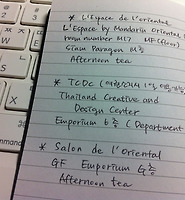 * L'Espace de l'oriental
L'Espace by Mandarin Oriental
room number M17 MF(floor)
Siam Paragon M층
Afternoon tea
* TCDC
Thailand Creative and
Design Center
Emporium 6층 (Department
* Salon de l'Oriental
GF Emporium G층
Afternoon tea